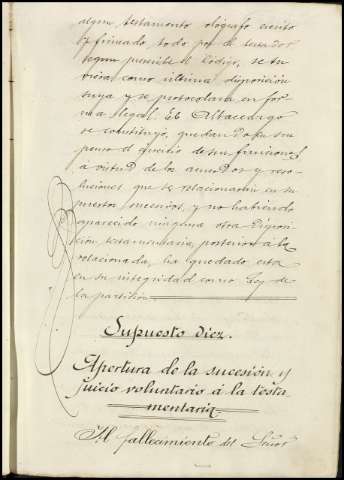 algun testamento ológrafo escrito
y firmado, todo por el testador
segun previene el Código, se tu
biera como última disposición
suya y se protocolara en for
ma llegal. El Albaceazgo
se constituyó, quedando en sus
penso el ejercicio de sus funciones
á virtud de los acuerdos y reso-
luciones que se relacionarán en su
puestos sucesivos, y no habiendo
aparecido ninguna otra disposi
ción testamentaria, posterior á la
relacionada, ha quedado esta
en su integridad como Ley de
la partición
Supuesto diez.
Apertura de la sucesión y
juicio voluntario á la testa
mentaria
Al fallecimiento del Señor